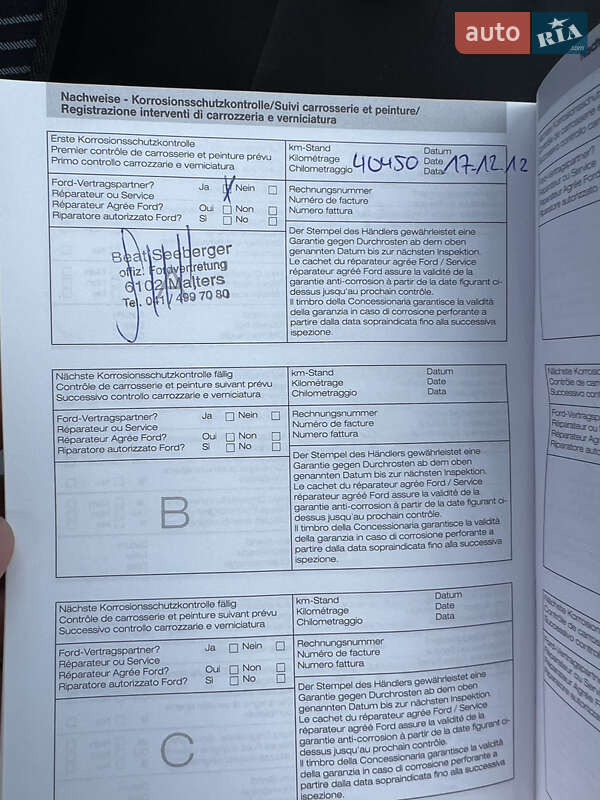 auto RIA .com
Nachweise - Korrosionsschutzkontrolle/Suivi carrosserie et peinture/
Registrazione interventi di carrozzeria e verniciatura
Erste Korrosionsschutzkontrolle
Premier contrôle de carrosserie et peinture prévu
Primo controllo carrozzarie e verniciatura
km-Stand
Kilométrage
Chilometraggio
40450
Datum
Date
Data
17.12.12
Ford-Vertragspartner? Ja Nein
Réparateur ou Service
Réparateur Agrée Ford? Oui Non
Riparatore autorizzato Ford? Si No
Rechnungsnummer
Numéro de facture
Numero fattura
Beat Seeberger
offiz. Fordvertretung
6102 Malters
Tel. 041 / 499 70 80
Der Stempel des Händlers gewährleistet eine
Garantie gegen Durchrosten ab dem oben
genannten Datum bis zur nächsten Inspektion.
Le cachet du réparateur agréé Ford / Service
réparateur agréé Ford assure la validité de la
garantie anti-corrosion à partir de la date figurant ci-
dessus jusqu'au prochain contrôle.
Il timbro della Concessionaria garantisce la validità
della garanzia in caso di corrosione perforante a
partire dalla data sopraindicata fino alla successiva
ispezione.
Nächste Korrosionsschutzkontrolle fällig
Contrôle de carrosserie et peinture suivant prévu
Successivo controllo carrozzarie e verniciatura
km-Stand
Kilométrage
Chilometraggio
Datum
Date
Data
Ford-Vertragspartner? Ja Nein
Réparateur ou Service
Réparateur Agrée Ford? Oui Non
Riparatore autorizzato Ford? Si No
Rechnungsnummer
Numéro de facture
Numero fattura
B
Der Stempel des Händlers gewährleistet eine
Garantie gegen Durchrosten ab dem oben
genannten Datum bis zur nächsten Inspektion.
Le cachet du réparateur agréé Ford / Service
réparateur agréé Ford assure la validité de la
garantie anti-corrosion à partir de la date figurant ci-
dessus jusqu'au prochain contrôle.
Il timbro della Concessionaria garantisce la validità
della garanzia in caso di corrosione perforante a
partire dalla data sopraindicata fino alla successiva
ispezione.
Nächste Korrosionsschutzkontrolle fällig
Contrôle de carrosserie et peinture suivant prévu
Successivo controllo carrozzarie e verniciatura
km-Stand
Kilométrage
Chilometraggio
Datum
Date
Data
Ford-Vertragspartner? Ja Nein
Réparateur ou Service
Réparateur Agrée Ford? Oui Non
Riparatore autorizzato Ford? Si No
Rechnungsnummer
Numéro de facture
Numero fattura
C
Der Stempel des Händlers gewährleistet eine
Garantie gegen Durchrosten ab dem oben
genannten Datum bis zur nächsten Inspektion.
Le cachet du réparateur agréé Ford / Service
réparateur agréé Ford assure la validité de la
garantie anti-corrosion à partir de la date figurant ci-
dessus jusqu'au prochain contrôle.
Il timbro della Concessionaria garantisce la validità
della garanzia in caso di corrosione perforante a
partire dalla data sopraindicata fino alla successiva
ispezione.